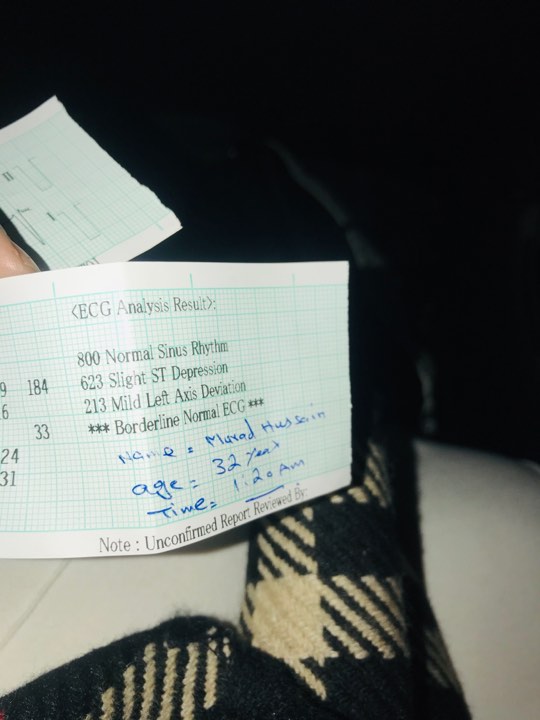 <ECG Analysis Result>:
800 Normal Sinus Rhythm
9 184 623 Slight ST Depression
6 213 Mild Left Axis Deviation
33 *** Borderline Normal ECG ***
24
31
Name = Murad Hussain
age = 32 year
Time = 1:20 AM
Note : Unconfirmed Report Reviewed By: